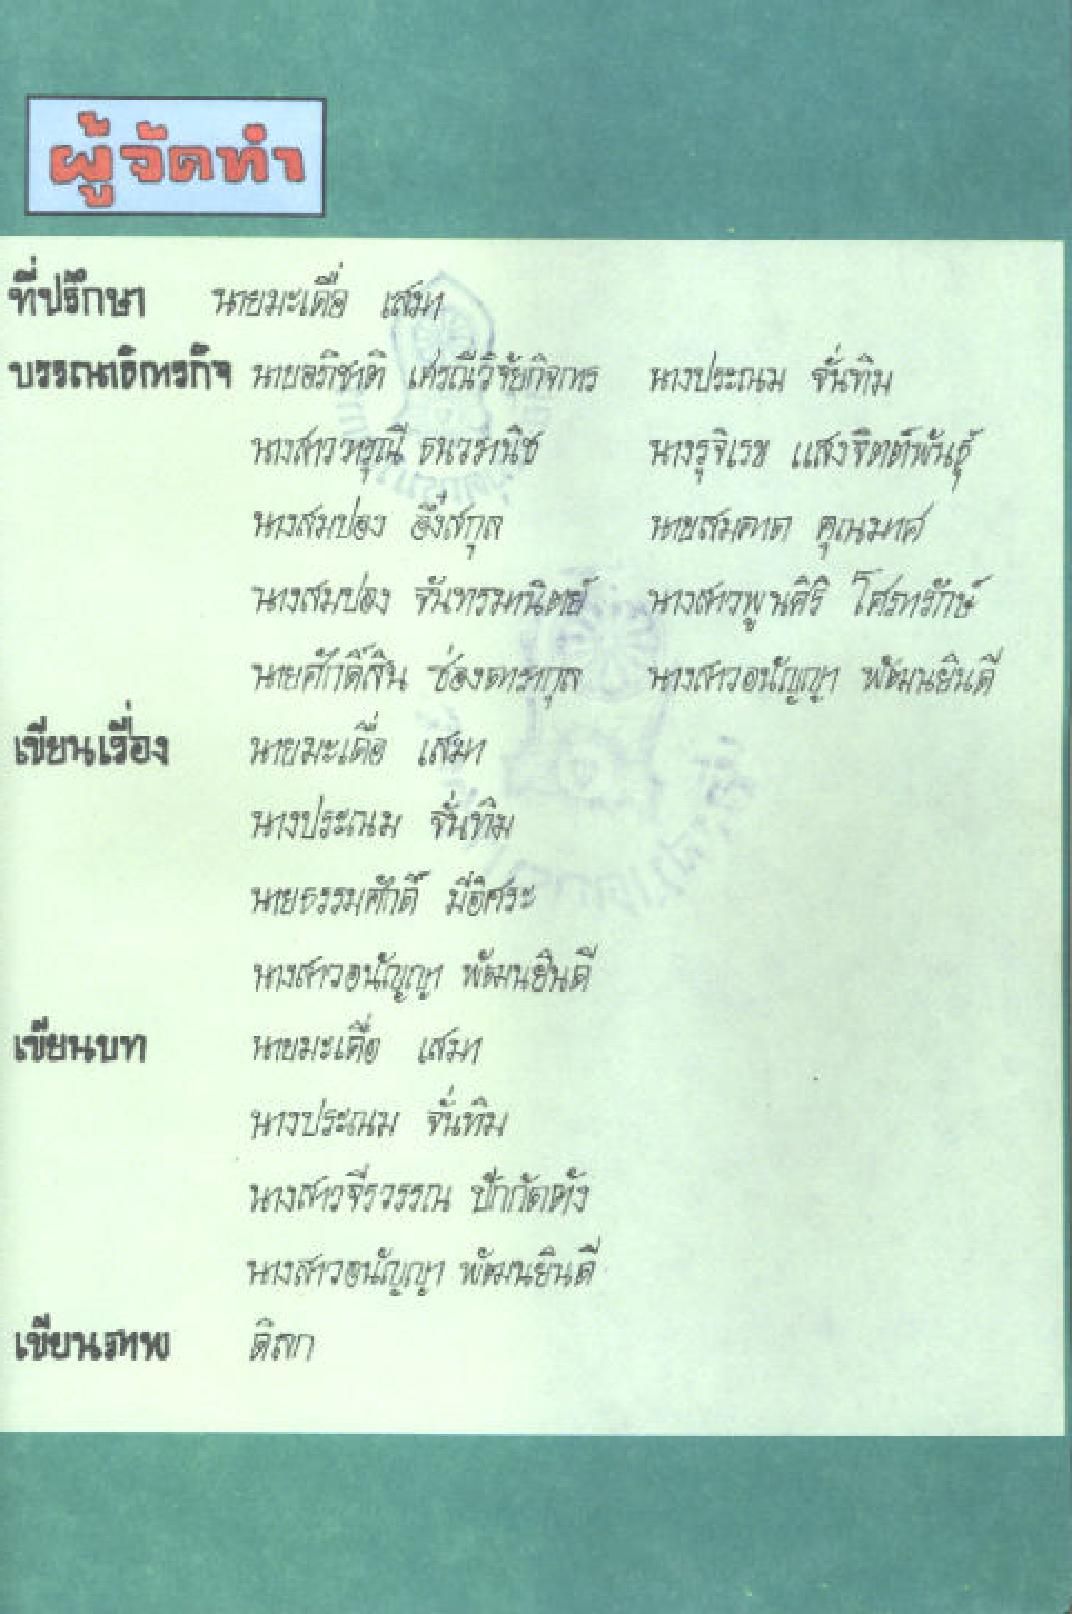 ผู้จัดทำ
ที่ปรึกษา นายมะเดื่อ เสมา
บรรณาธิการกิจ นายอภิชาติ เศรณีวิจัยกิจการ นางประณม จั่นทิม
นางสาวทรุณี ธนวรานิช นางรุจิเรข แสงจิตต์พันธุ์
นางสมปอง อึ๋งสกุล นายสมคาด คุณมาศ
นางสมปอง จันทรมานิตย์ นางสาวพูนศิริ โศรทรักษ์
นายศักดิ์สิน ช่องดารากุล นางสาวอนัญญา พัฒนยินดี
เขียนเรื่อง นายมะเดื่อ เสมา
นางประณม จั่นทิม
นายธรรมศักดิ์ มีอิศระ
นางสาวอนัญญา พัฒนยินดี
เขียนบท นายมะเดื่อ เสมา
นางประณม จั่นทิม
นางสาวจีรวรรณ ปักกัดตัง
นางสาวอนัญญา พัฒนยินดี
เขียนภาพ ดิลก